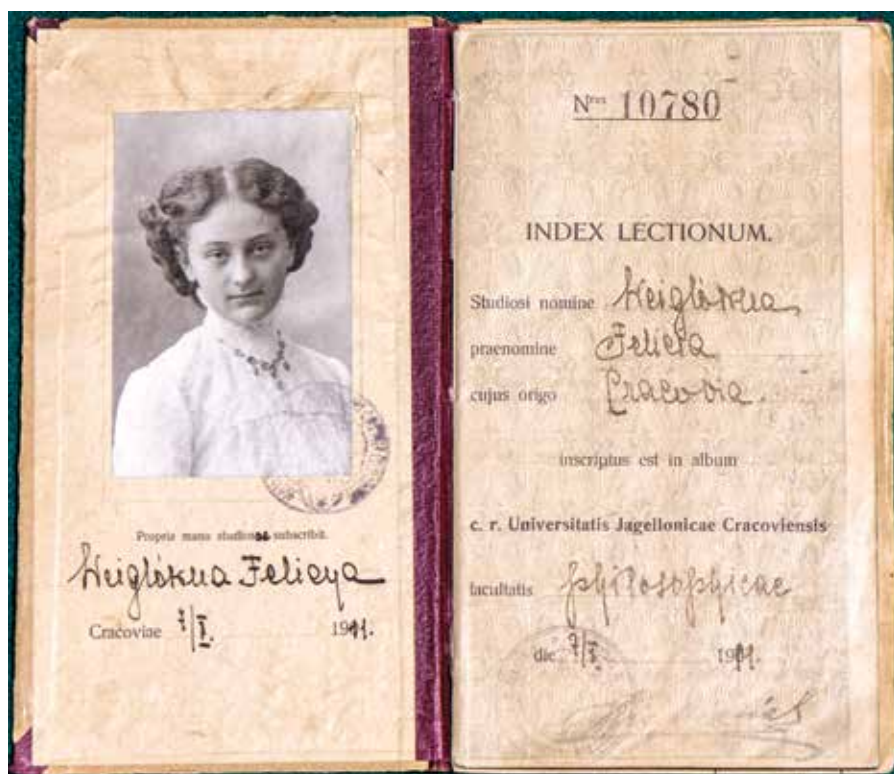 Propria manu studiosae subscribit.
Weiglówna Felicya
Cracoviae 7/X. 1911.
Nrus 10780
INDEX LECTIONUM.
Studiosi nomine Weiglówna
praenomine Felicia
cujus origo Cracovia.
inscriptus est in album
c. r. Universitatis Jagellonicae Cracoviensis
facultatis philosophicae
die 7/X. 1911.